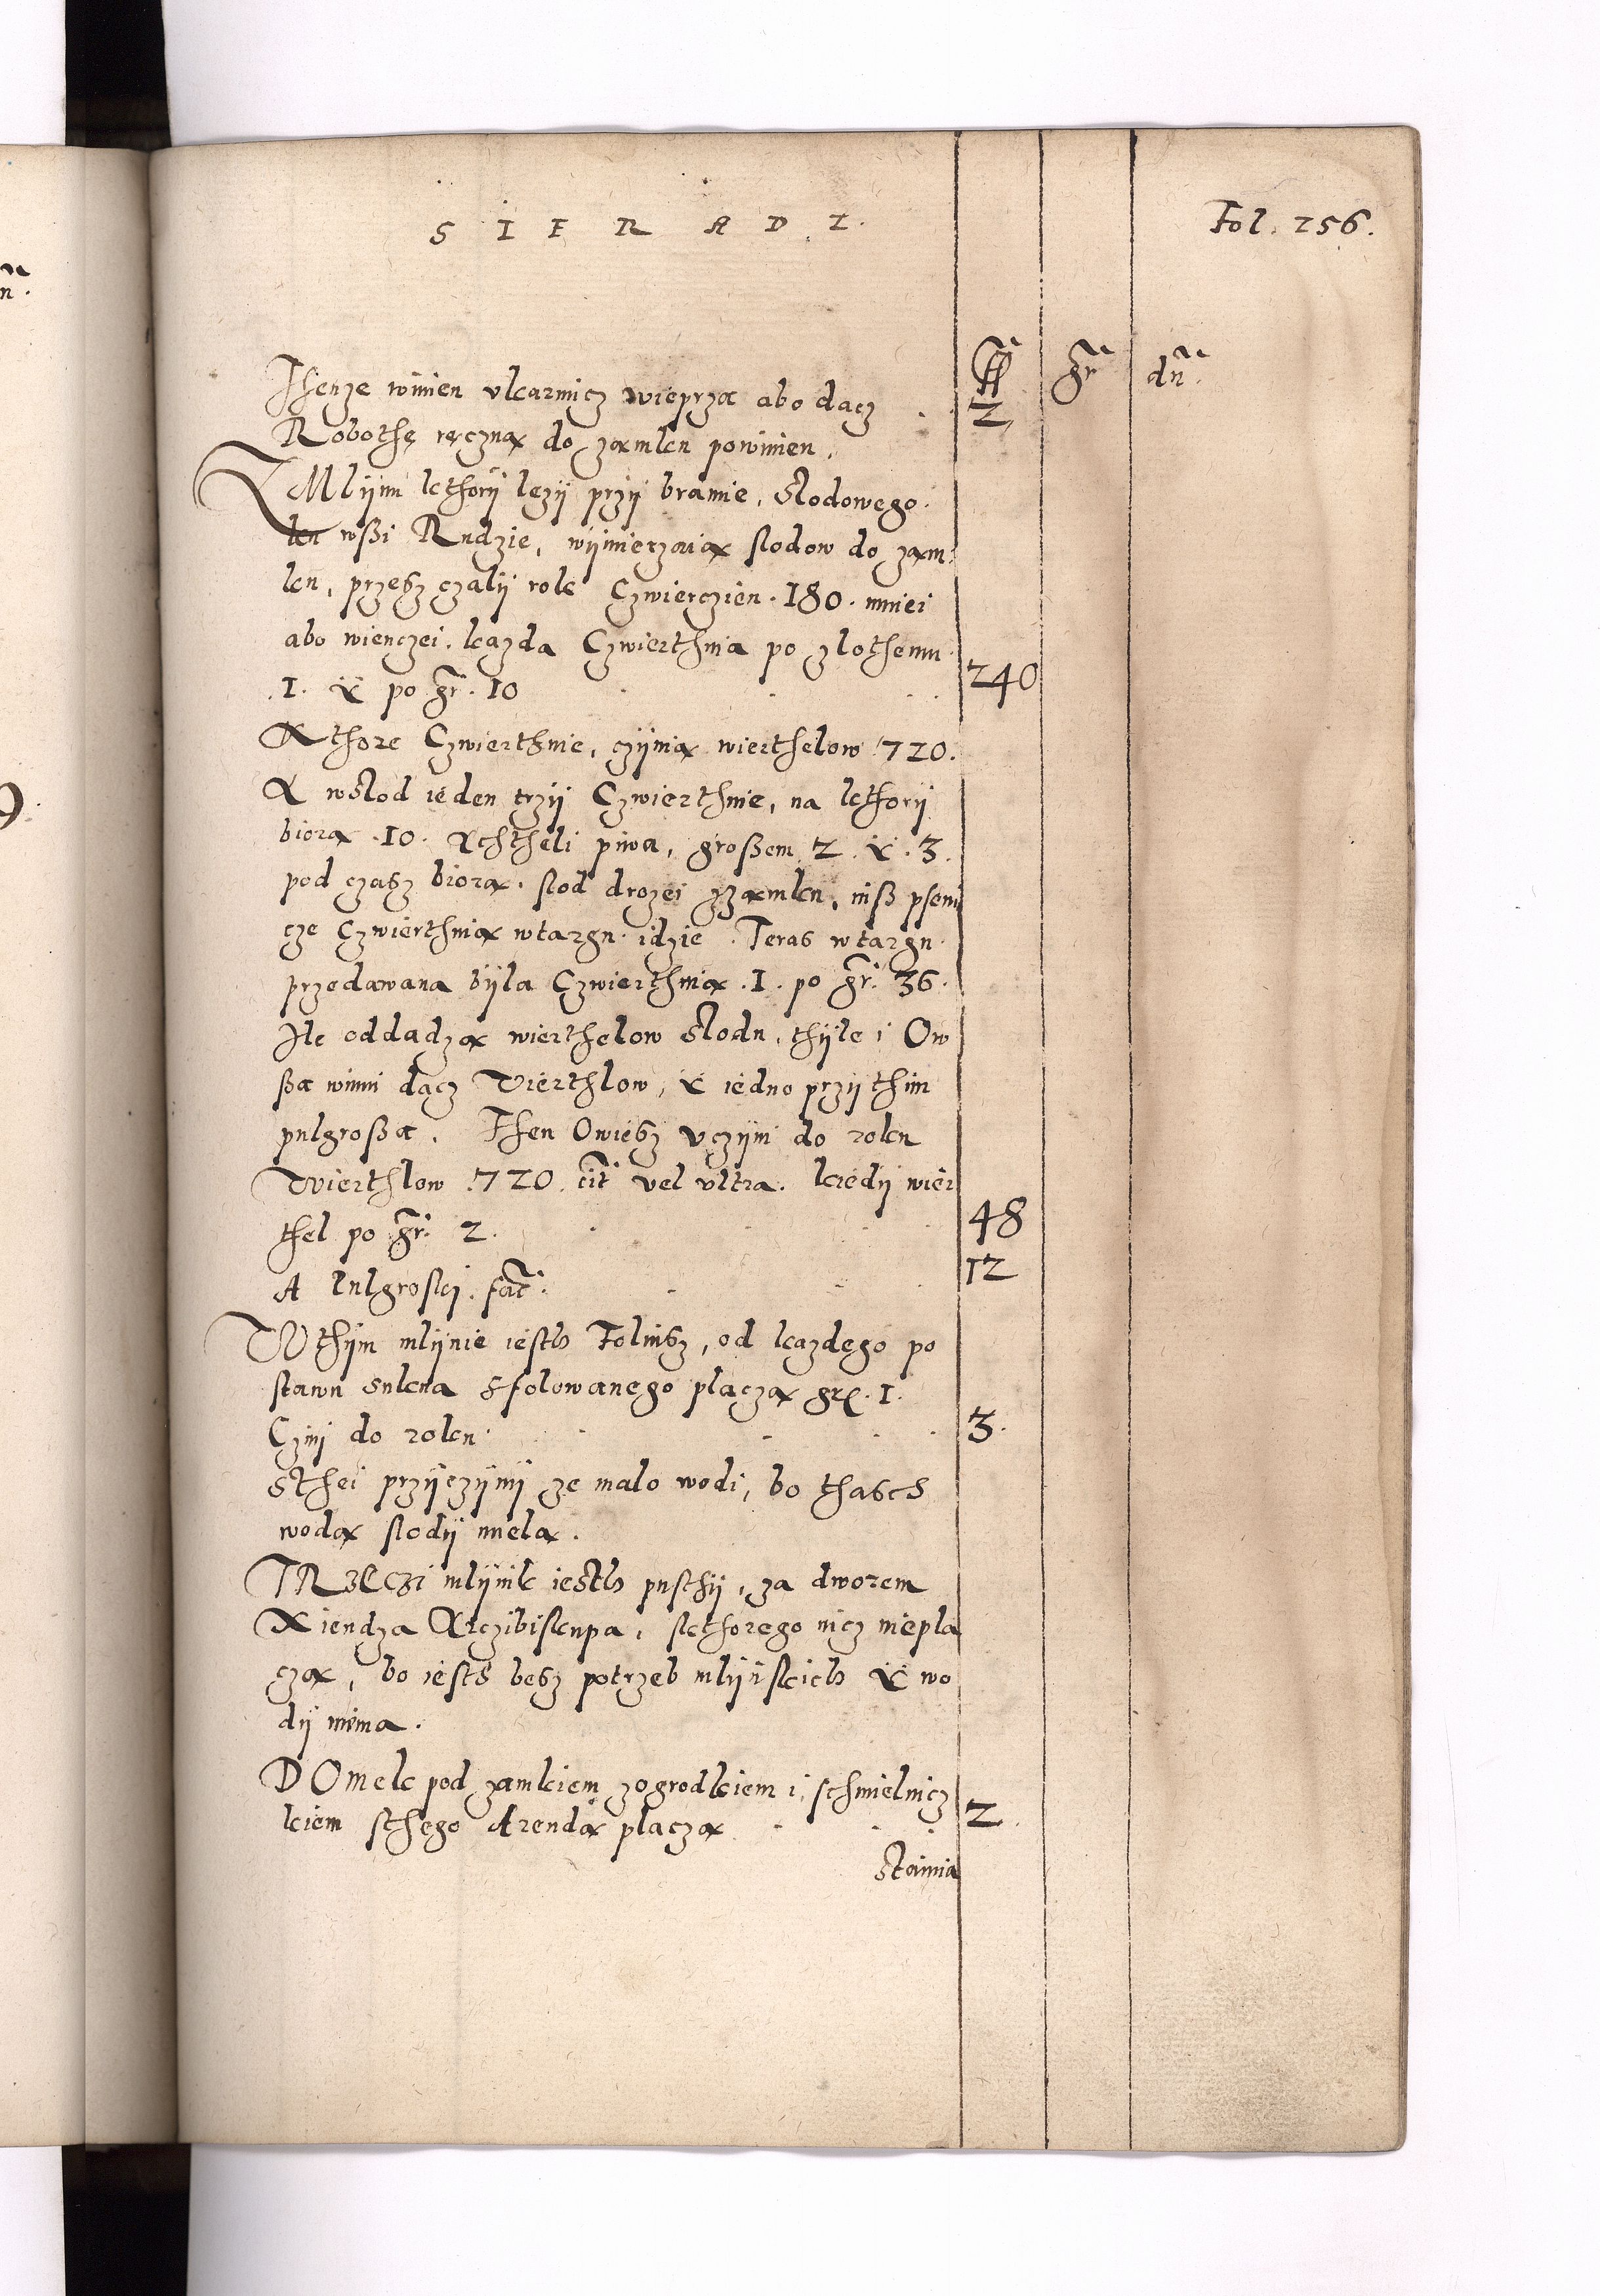 SIERADZ.
Fol. 256.
fl gr dn.
Thenze winien vkarmicz wieprza abo dacz . 2
Robothę ręczną do zamku powinien.
Z Mlijnu kthorij lezij przij bramie, Slodowego.
ku wßi Rudzie, wijmierzaią slodow do zam:
ku, przesz czalij rok Czwierczien . 180 . mniei
abo wienczei . kazda Czwierthnia po zlothemu
.1. y po gr . 10 . . . 240
A thore Czwierthnie, czijnią wierthelow 720.
A wslod ieden trzij Czwierthnie, na kthorij
biorą .10. Achtheli piwa, großem 2. y . 3.
pod czasz biorą . slod drozei zzamku, niß pseni
cze Czwierthnią wtargu idzie . Teras wtargu
przedawana bijla Czwierthnia .1. po gr. 36.
Ile oddadzą wierthelow slodu, thijle i Ow
ßa winni dacz Vierthlow, y iedno przij thim
pulgroßa . Then Owiesz vczijni do roku
Wierthlow .720. cit vel vltra . kiedij wier
thel po gr. 2. . . . 48
A pulgroskj . fac. . . . 12
W thijm mlijnie iesth Folusz, od kazdego po
stawu sukna sfolowanego placzą gr. 1.
Czini do roku . . . . 3.
Sthei przijczijnij ze malo wodi, bo thasch
wodą slodij miela.
TRzeczi mlijnik iesth pusthij, za dworem
Xiendza Arczibiskupa, skthorego nicz niepla
czą, bo iesth besz potrzeb mlijnskich y wo
dij nima.
DOmek pod zamkiem zogrodkiem i, schmielnicz
kiem sthego Arendą placzą . . . 2.
Stainia